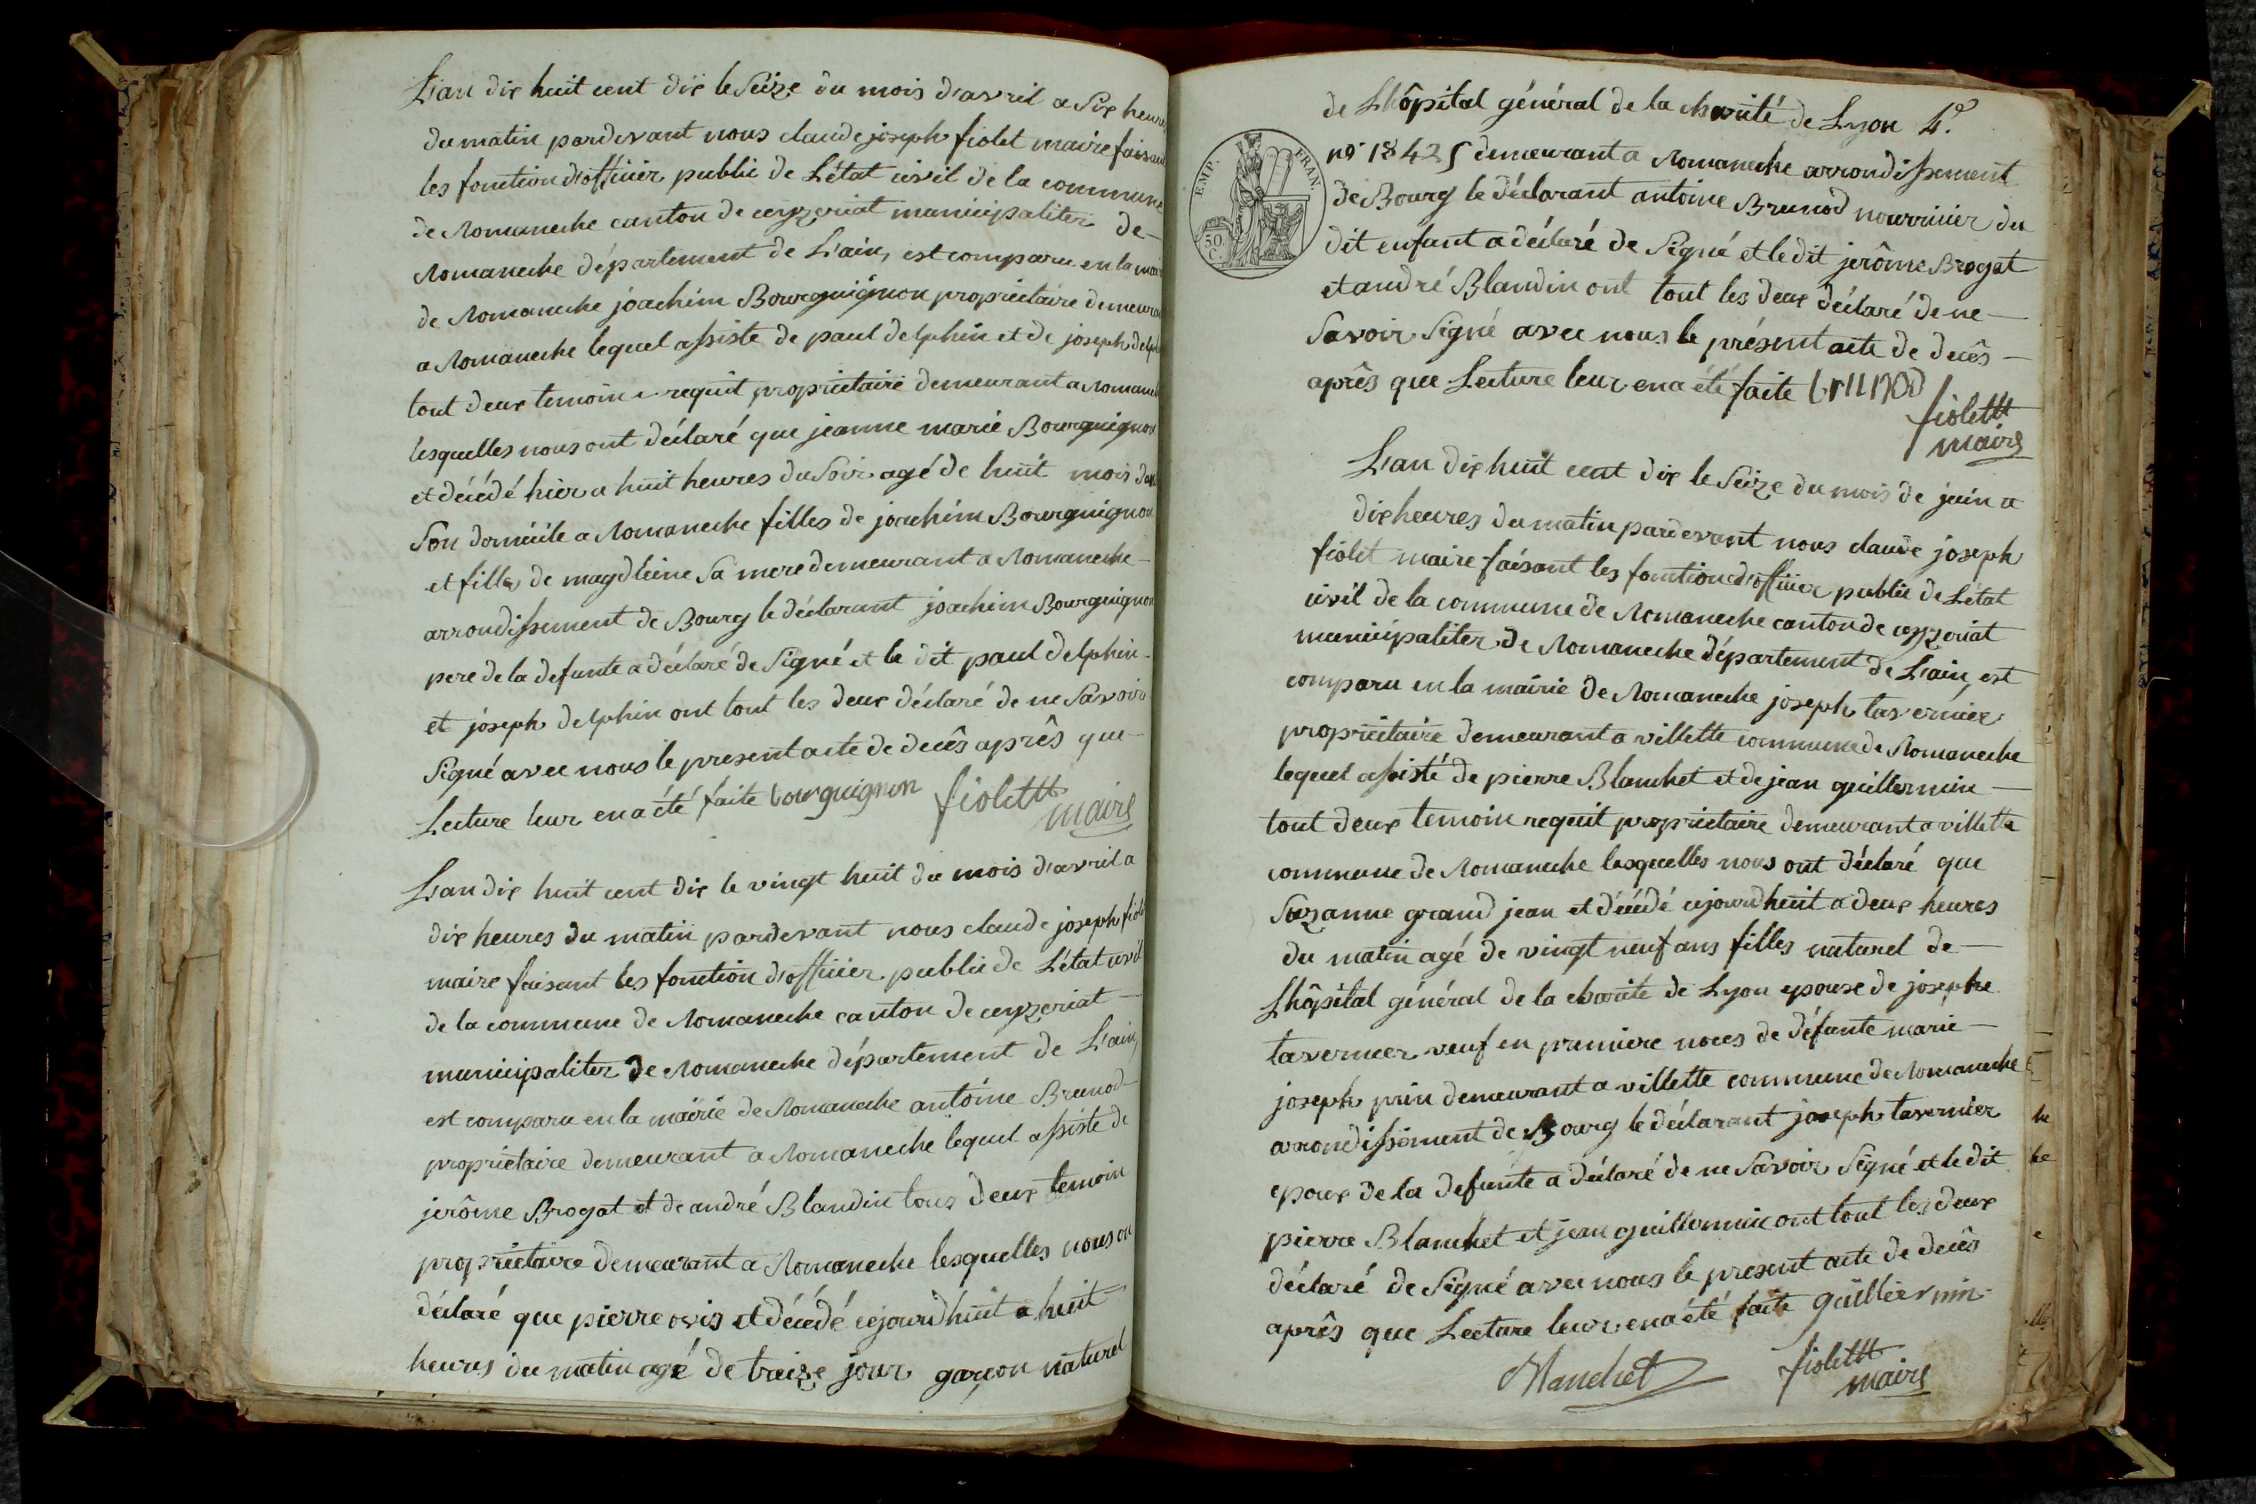 L'an dix huit cent dix le Seize du mois d'avril a Six heures
du matin pardevant nous claude joseph fiolet maire faisant
les fonction d'officier public de L'état civil de la commune
de Romaneche canton de ceyzeriat municipaliter de
Romaneche département de L'ain, est comparu en la mairie
de Romaneche joachim Bourguignon propriétaire demeurant
a Romaneche lequel assisté de paul delphin et de joseph delphin
tout deux temoin requit propriétaire demeurant a Romaneche
lesquelles nous ont déclaré que jeanne marie Bourguignon
et décédé hier a huit heures du Soir agé de huit mois dans
Son domicile a Romaneche filles de joachim Bourguignon
et filles de magdleine Sa mere demeurant a Romaneche
arrondissement de Bourg le déclarant joachim Bourguignon
pere de la defunte a déclaré de Signé et le dit paul delphin
et joseph delphin ont tout les deux déclaré de ne Savoir
Signé avec nous le present acte de decês aprês que
Lecture leur en a été faite bourguignon fiolettt
maire
L'an dix huit cent dix le vingt huit du mois d'avril a
dix heures du matin pardevant nous claude joseph fiolet
maire faisant les fonction d'officier public de L'état civil
de la commune de Romaneche canton de ceyzeriat
municipaliter de Romaneche département de L'ain,
est comparu en la mairie de Romaneche antoine Brunod
propriétaire demeurant a Romaneche lequel assisté de
jerôme Brogat et de andré Blandin tous deux temoin
propriétaire demeurant a Romaneche lesquelles nous on
déclaré que pierre ovis et décédé cejourdhuit a huit
heures du matin agé de treize jour garçon naturel
de Lhôpital général de la charité de Lyon 4.e
EMP. FRAN.
50. C.
no. 18425 demeurant a Romaneche arrondissement
de Bourg le déclarant antoine Brunod nourricier du
dit enfant a déclaré de Signé et le dit jerôme Brogat
et andré Blandin ont tout les deux déclaré de ne
Savoir Signé avec nous le présent acte de decês
aprês que Lecture leur en a été faite brunod
fiolettt
maire
L'an dix huit cent dix le Seize du mois de juin a
dix heures du matin pardevant nous claude joseph
fiolet maire faisant les fonction d'officier public de L'état
civil de la commune de Romaneche canton de ceyzeriat
municipaliter de Romaneche département de L'ain, est
comparu en la mairie de Romaneche joseph tavernier
propriétaire demeurant a villette commune de Romaneche
lequel assisté de pierre Blanchet et de jean guillermin
tout deux temoin requit propriétaire demeurant a villette
commune de Romaneche lesquelles nous ont déclaré que
Suzanne grand jean et décédé cejourdhuit a deux heures
du matin agé de vingt neuf ans filles naturel de
Lhôpital général de la charite de Lyon epouse de josephe
tavernier veuf en premiere noces de défunte marie
joseph prin demeurant a villette commune de Romaneche
arrondissement de Bourg le déclarant joseph tavernier
epoux de la defunte a déclaré de ne Savoir Signé et le dit
pierre Blanchet et jean guillermin ont tout les deux
déclaré de Signé avec nous le present acte de decês
aprês que Lecture leur en a été faite guillermin
Blanchet fiolettt
maire